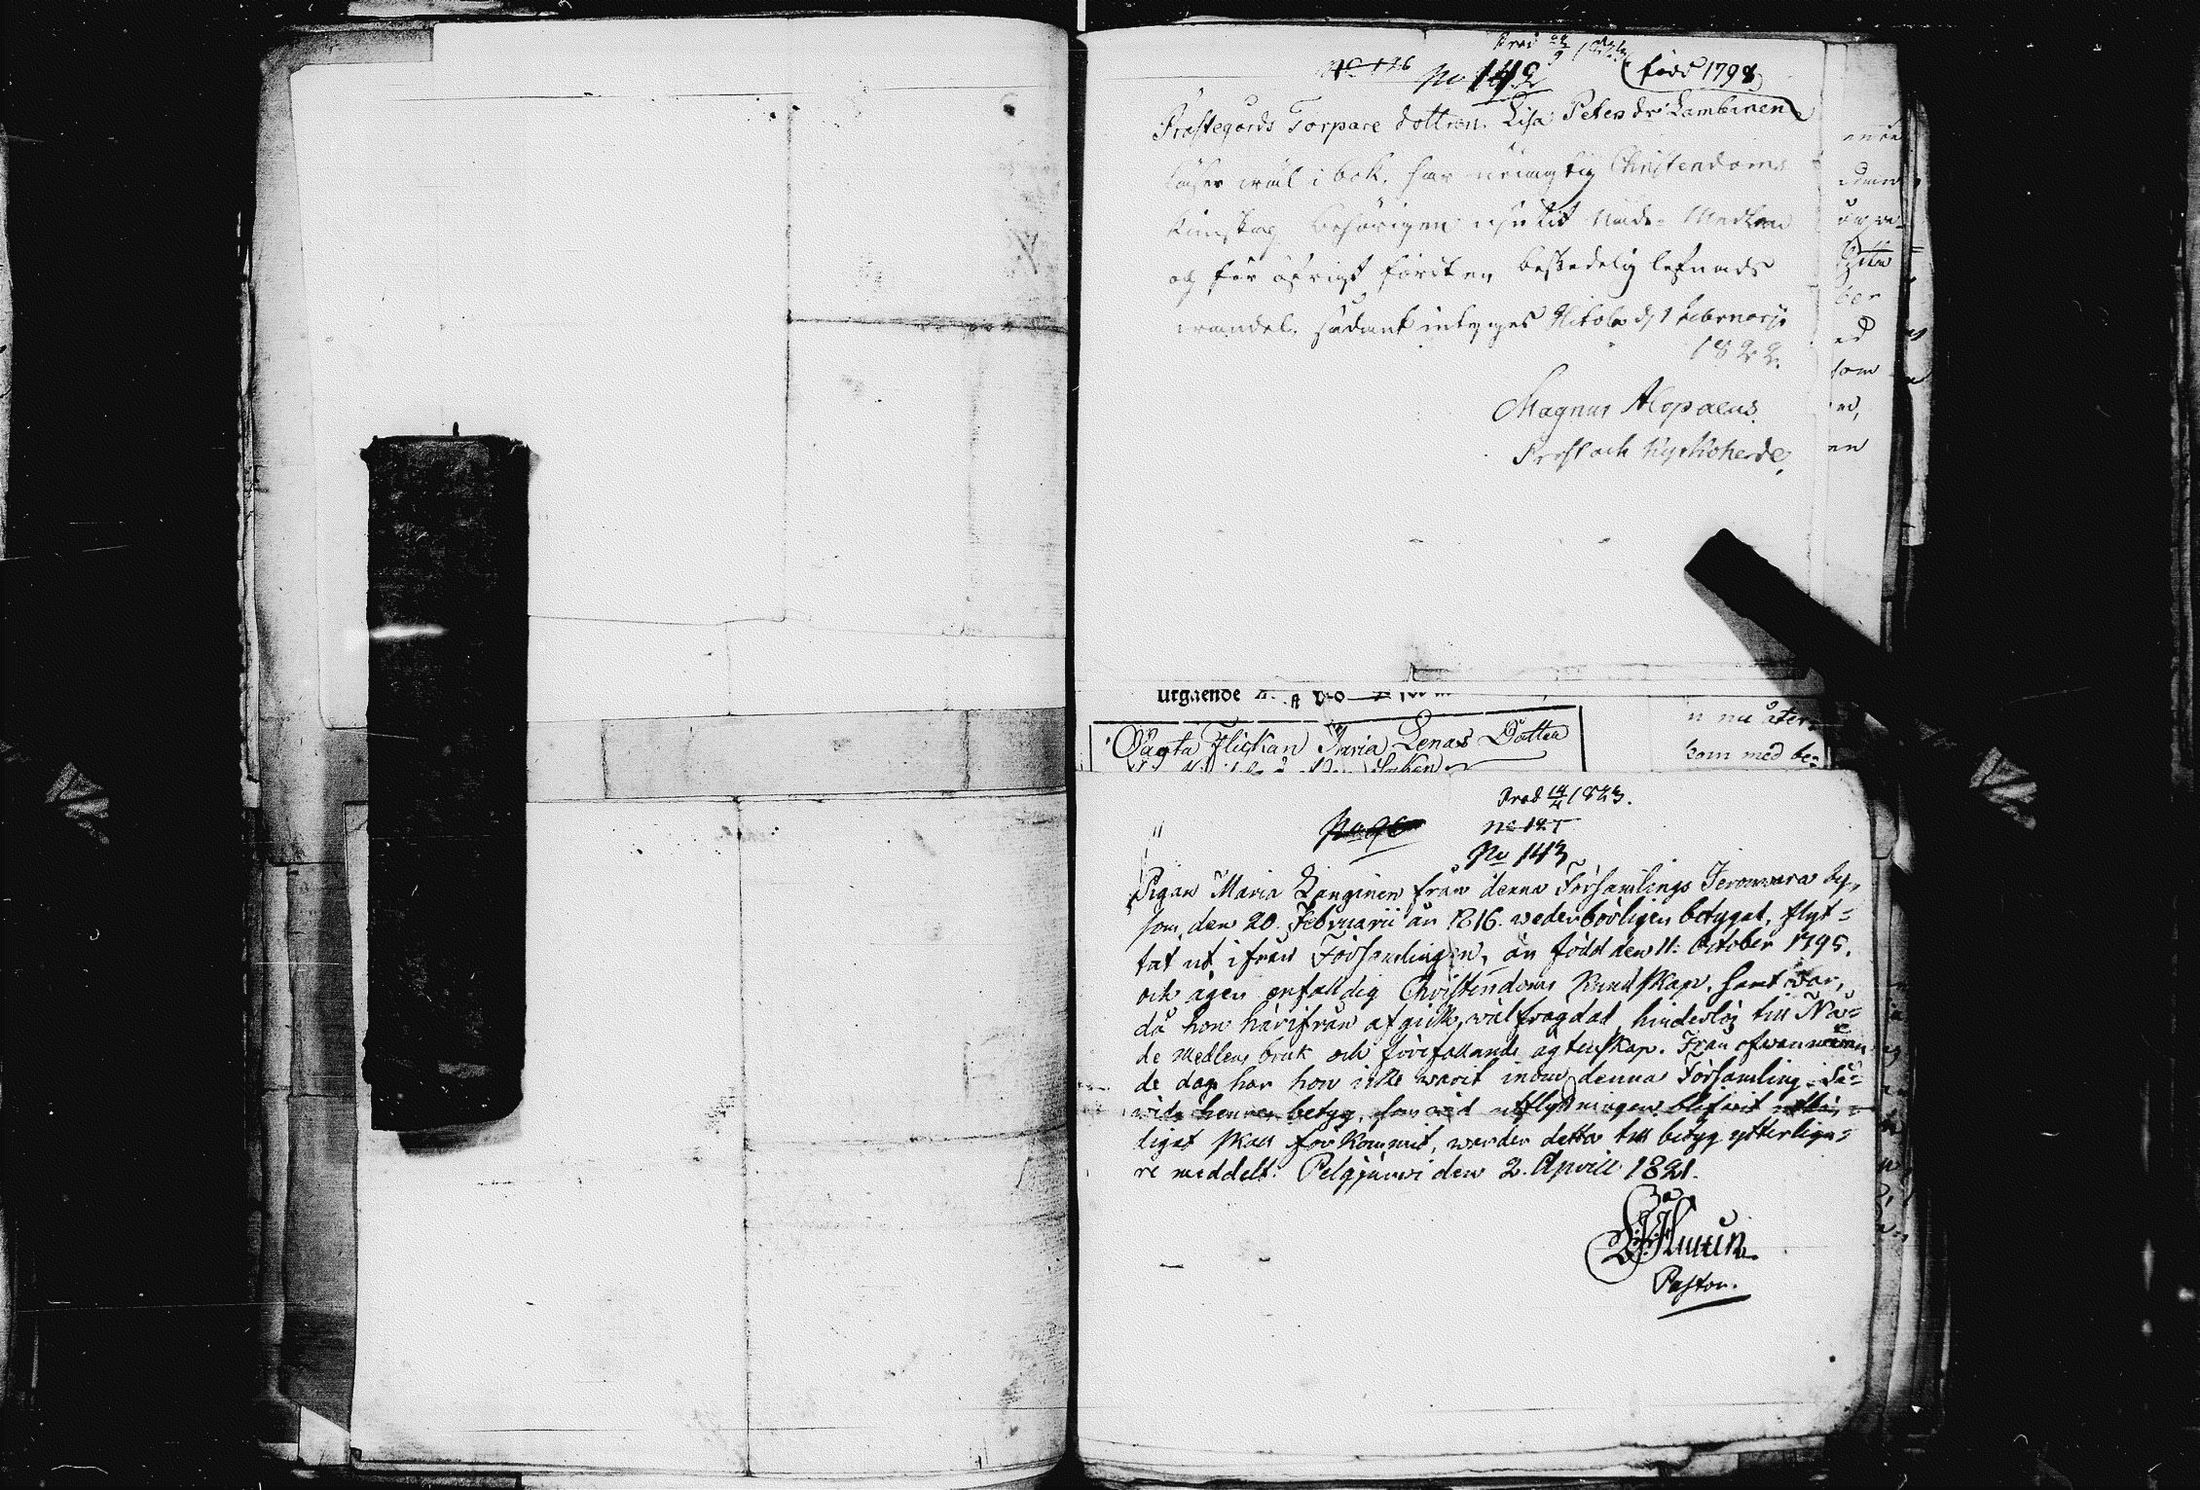 No 126
No 142
född 1798
Prostegårds Torpare dottren Lisa Petersdr Lambinen
läser wäl i bok, har nöiagtig Christendoms
kunskap behörigen niutit Nåde-Medlen
og för öfrigt fördt en beskedelig lefnads
wandel. sådant intyges Hitola d 1 Februarji
1822.
Magnus Alopaeus
Prost och Kyrkoherde
utgående
Oägta Flickan Maria Lenas Dotter
n nu åter
kom med be-
Prod 14/4 1823.
No 127
No 143
Pigan Maria Langinen från denna Församlings Jeronwara by,
som, den 20. Februarii år 1816. wederbörligen betygat, flyt=
tat ut ifrån Församlingen, är född den 11. October 1795.
och äger enfaldig Christendoms Kundskap, samt war,
då hon härifrån afgick, wälfragdad, hinderlös till Nå=
de Medlens bruk och förefallande ägtenskap. Från ofwannämn
de dag har hon icke warit inom denna Församling. Så=
wida hennes betyg, som wid utflyttningen blifwit
ligat skall förkommit, warder detta till betyg ytterliga=
re meddelt. Pelgjärwi den 2. Aprill 1821.
Pastor.